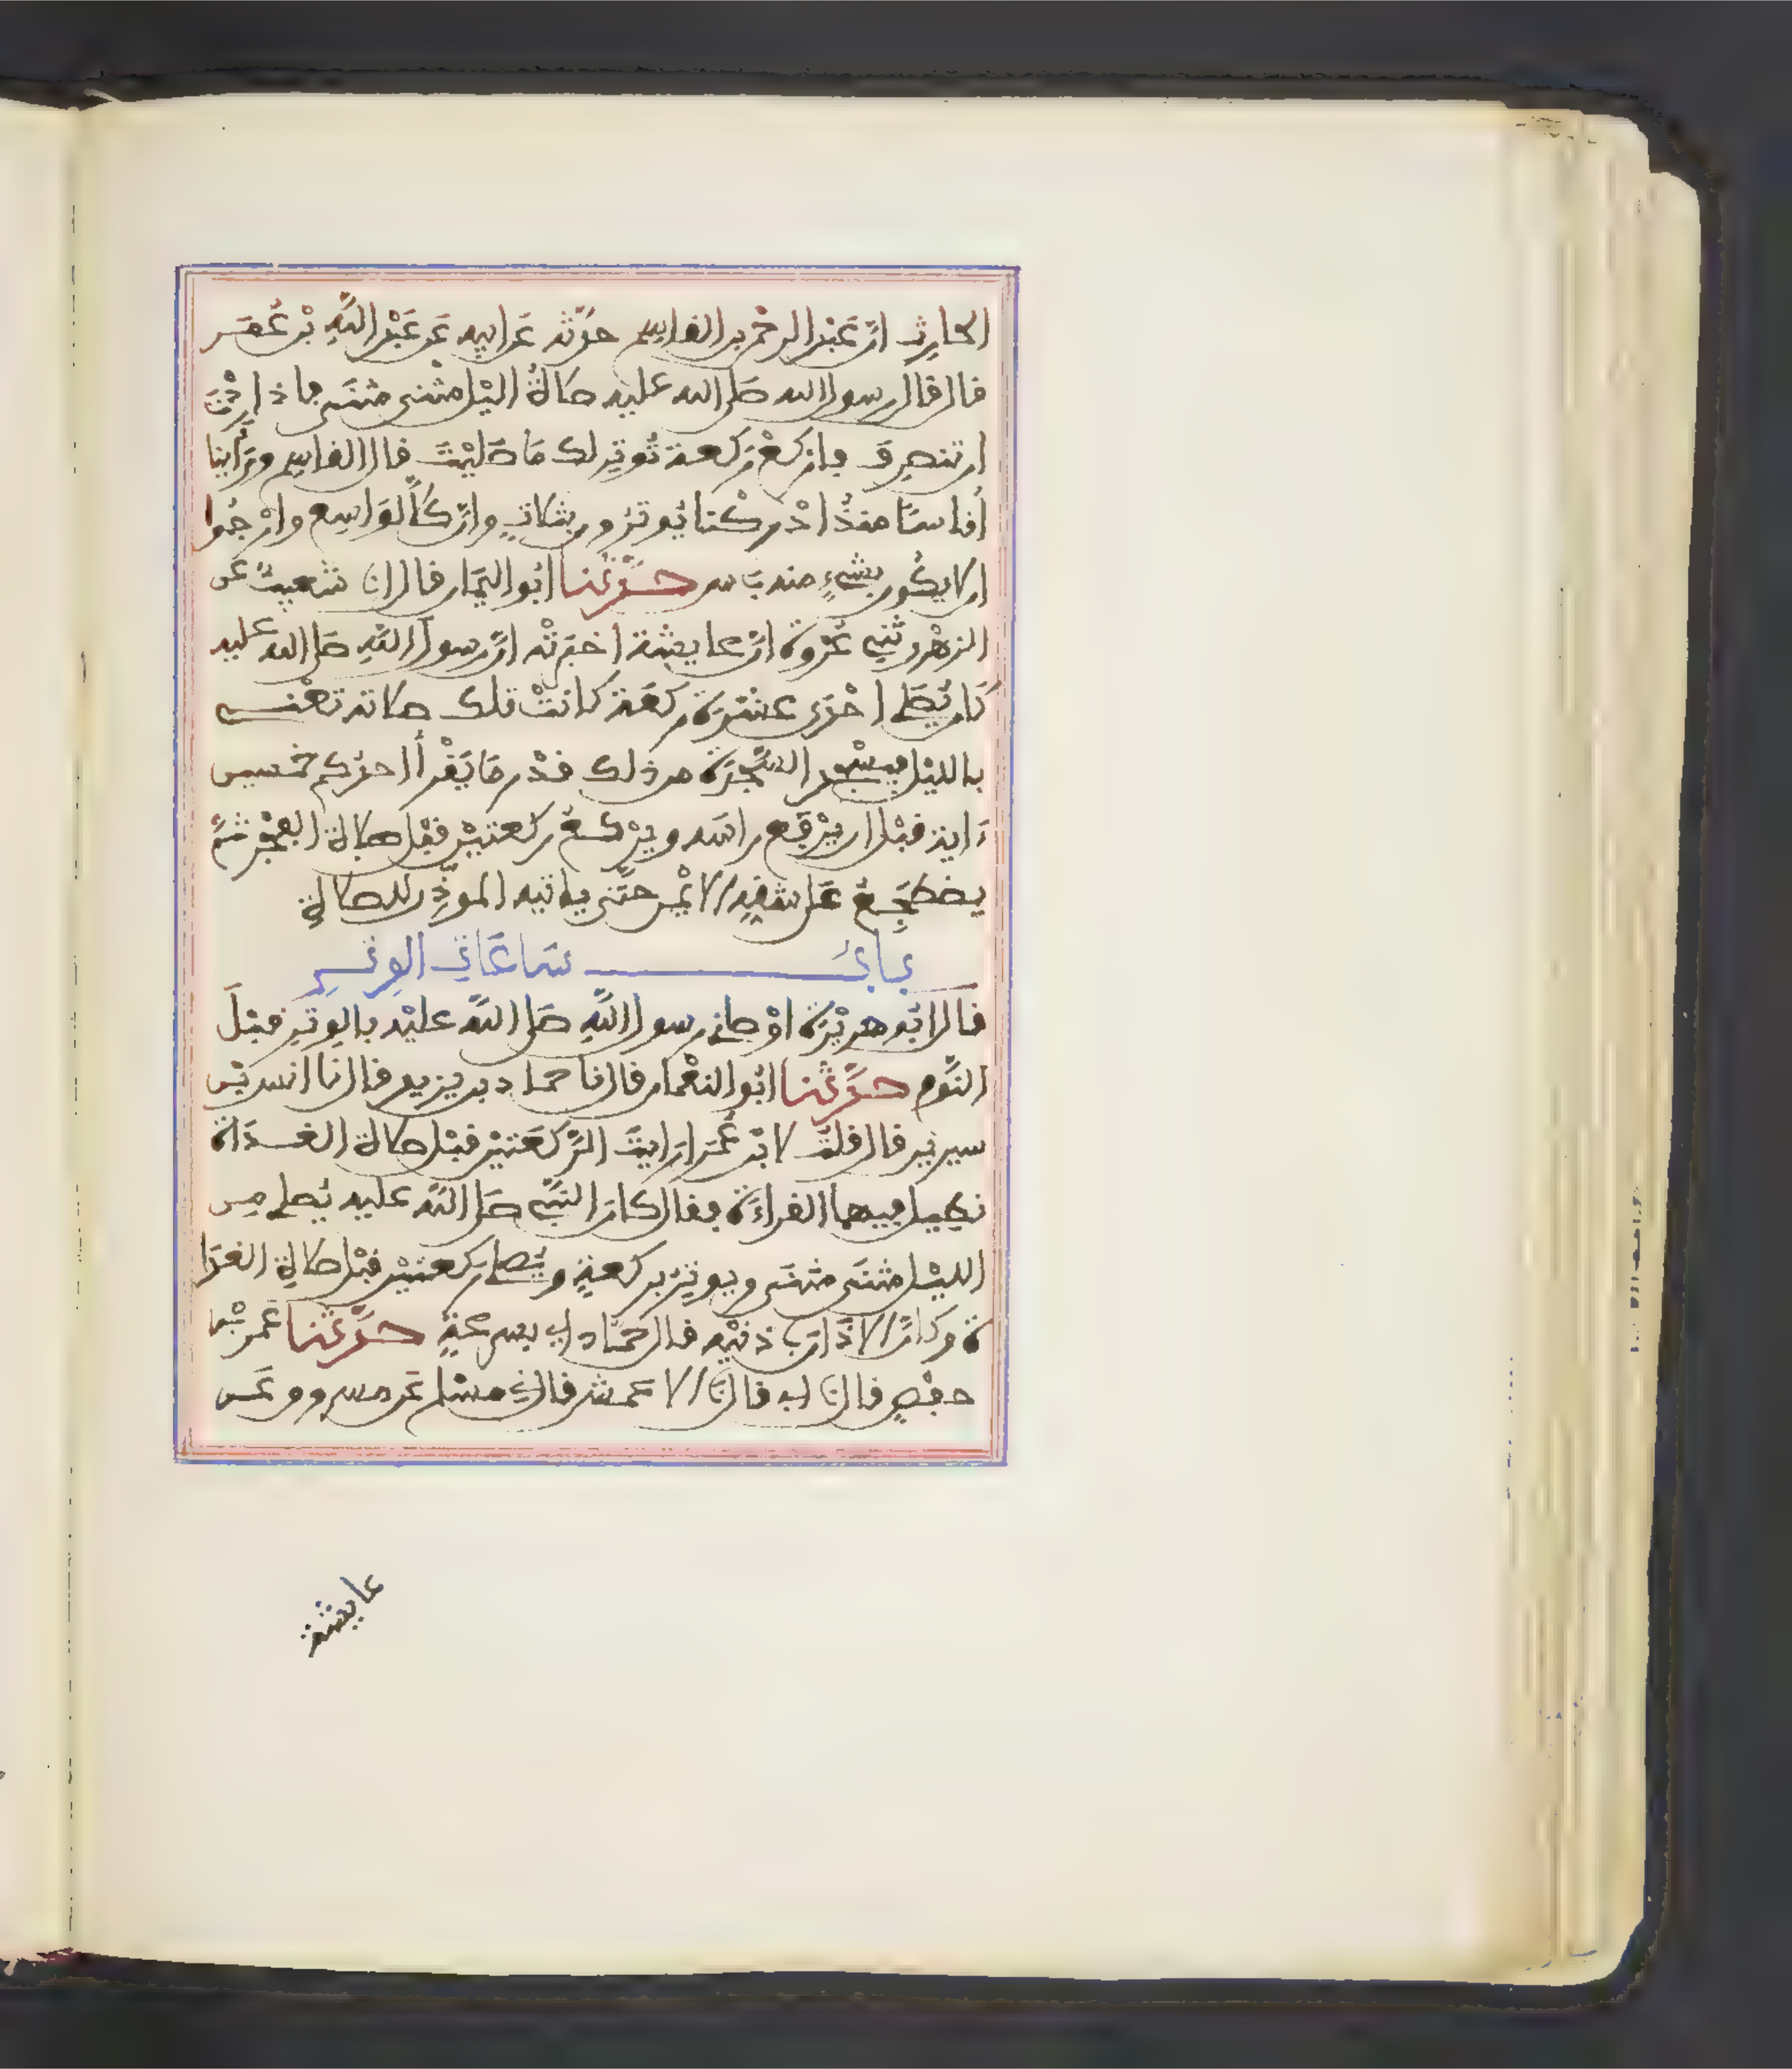 الحارث انّ عَبْد الرحْمن بن الفاسِم حدّثه عَن ابيه عَن عَبْد اللّهِ بْن عُمَـر
فال فال رسول الله صَلى الله عليه صلاةُ اليْل مثْنى مثنَى فاذا اردْتَ
ان تنصرِفَ فارْكعْ رَكعة تُوتِر لك مَا صَليْتَ فال الفاسِم ورَأينا
أُناسًا منذُ ادْركْنا يُوترُون بثلاثٍ وانّ كلاًّ لوَاسِع وارْجُوا
ان لا يكُون بشيْءٍ منه بَاس حـدّثنا ابُو اليمَان فال انا شعيبٌ عَن
الزهْري ثني عُرْوة انّ عايشة اخبَرتْه انّ رسولَ اللّهِ صَلى الله عليه
كَان يُصَلى احْدَى عشْرَة ركعَة كانتْ تلك صلاته تعْنـي
بالليْل فيسْجد السَّجْدَة من ذلك فدْر مَا يَفْرأُ احدُكم خمسين
ءاية فبْل ان يرْفَع راسَه ويرْكـعُ ركعتيْن فبْل صلاة الفجْر ثمّ
يضطجِـعُ عَلى شفِهِ الايْمن حتّى ياتيه الموذّن للصلاةِ
بابُ ساعَاتِ الوِتـرِ
فَال ابُو هرَيْرَة اوْصانِي رسول اللّهِ صَلى اللّه عليْه بالوِترِ فبْلَ
النّوم حـدّثنا ابُو النعْمان فال نا حماد بن يزيد فال نا انس بْن
سيرين فال فلتُ لابْن عُمَر ارَايتَ الرّكعَتيْن فبْل صلاة الغـدَاة
نطِيل فيهما الفراءَة ففال كانَ النّبيّ صَلى اللّه عليه يُصلى مِن
الليْل مثنَى مثنَى ويوتِرُ بركعةٍ ويُصلى ركعتيْن فبْل صلاةِ الغدَا
ة وكانَّ الاذَانَ بِأذنيْه فال حمّاد اي بسرعَةٍ حـدّثنا عُمر بْن
حفْصٍ فال نا ابي فال نا الاعمش فال ني مسْلم عَن مسروق عَـن
عايشة